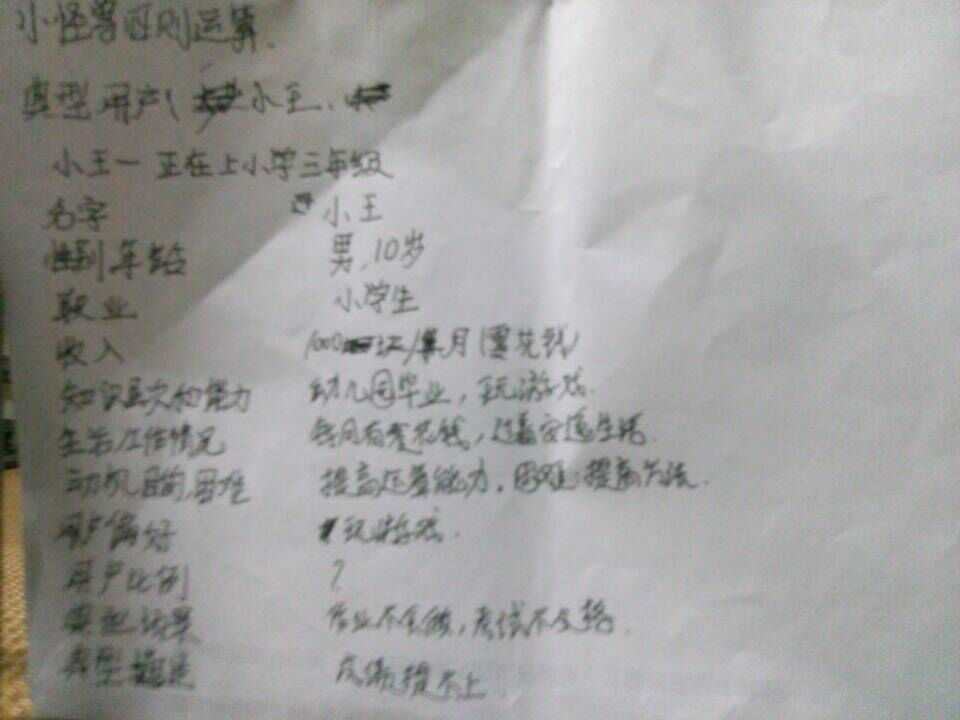 小怪兽四则运算
典型用户(小王、
小王一正在上小学三年级
名字 小王
性别,年龄 男,10岁
职业 小学生
收入 1000 /月(零花钱)
知识层次和能力 幼儿园毕业,玩游戏.
生活/工作情况 每月有零花钱,过着安逸生活.
动机,目的,困难 提高运算能力,困难:提高方法.
用户偏好 玩游戏.
用户比例 ?
典型场景 作业不会做,考试不及格.
典型描述 成绩提不上